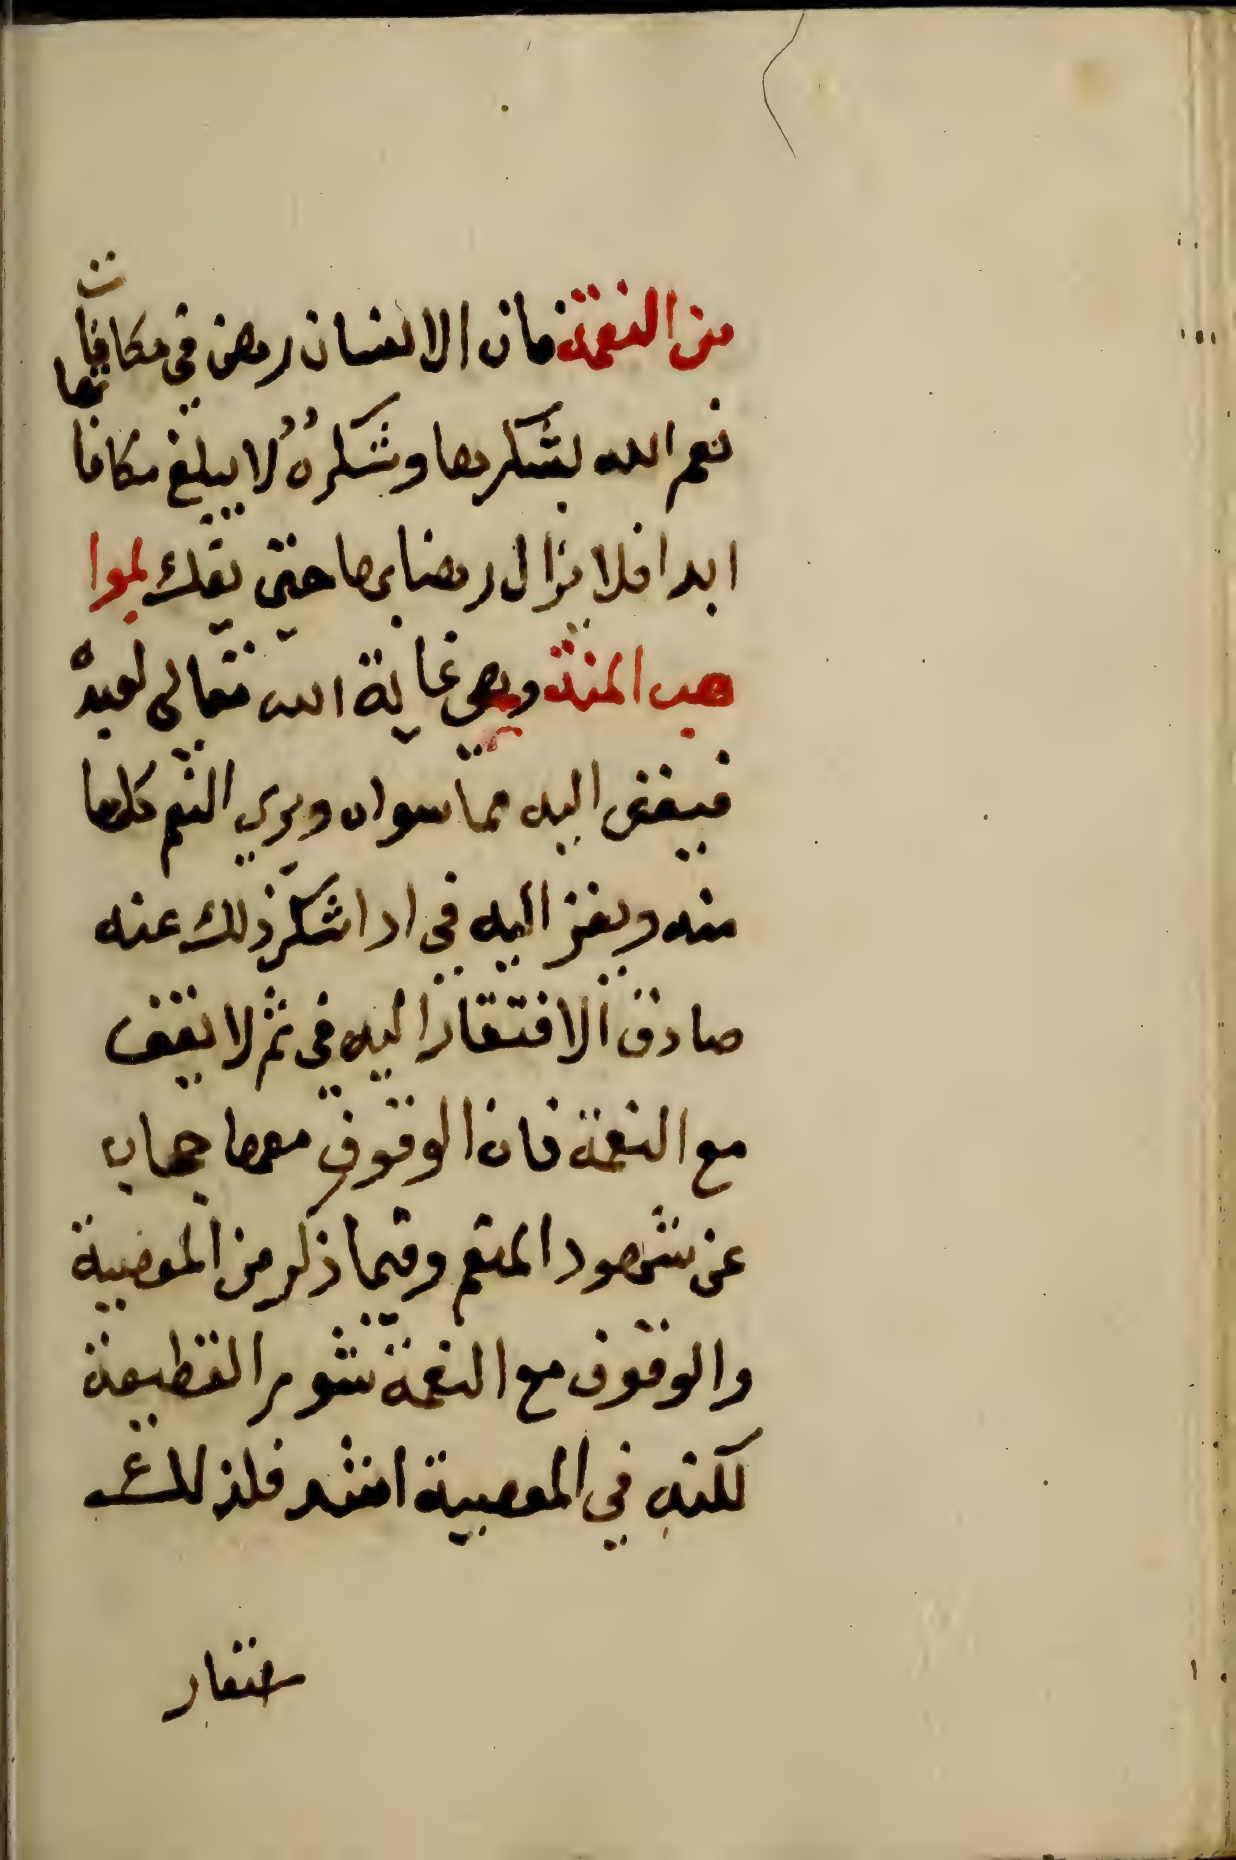 من النعمة فان الانسان رهن في مكافات
نعم الله بشكرها وشكره لا يبلغ مكافاتها
ابدا فلا يزال رهنا بها حتى يفك لموا
هب المنة وهي غاية الله تعالى لعبده
فيفنى اليه مما سواه ويرى النعم كلها
منه ويفز اليه في ادا شكر ذلك عنه
صادق الافتقار اليه في ثم لا يقف
مع النعمة فان الوقوف معها حجاب
عن شهود المنعم وفيما ذكر من المعصية
والوقوف مع النعمة شوم القطيعة
لكنه في المعصية اشد فلذلك